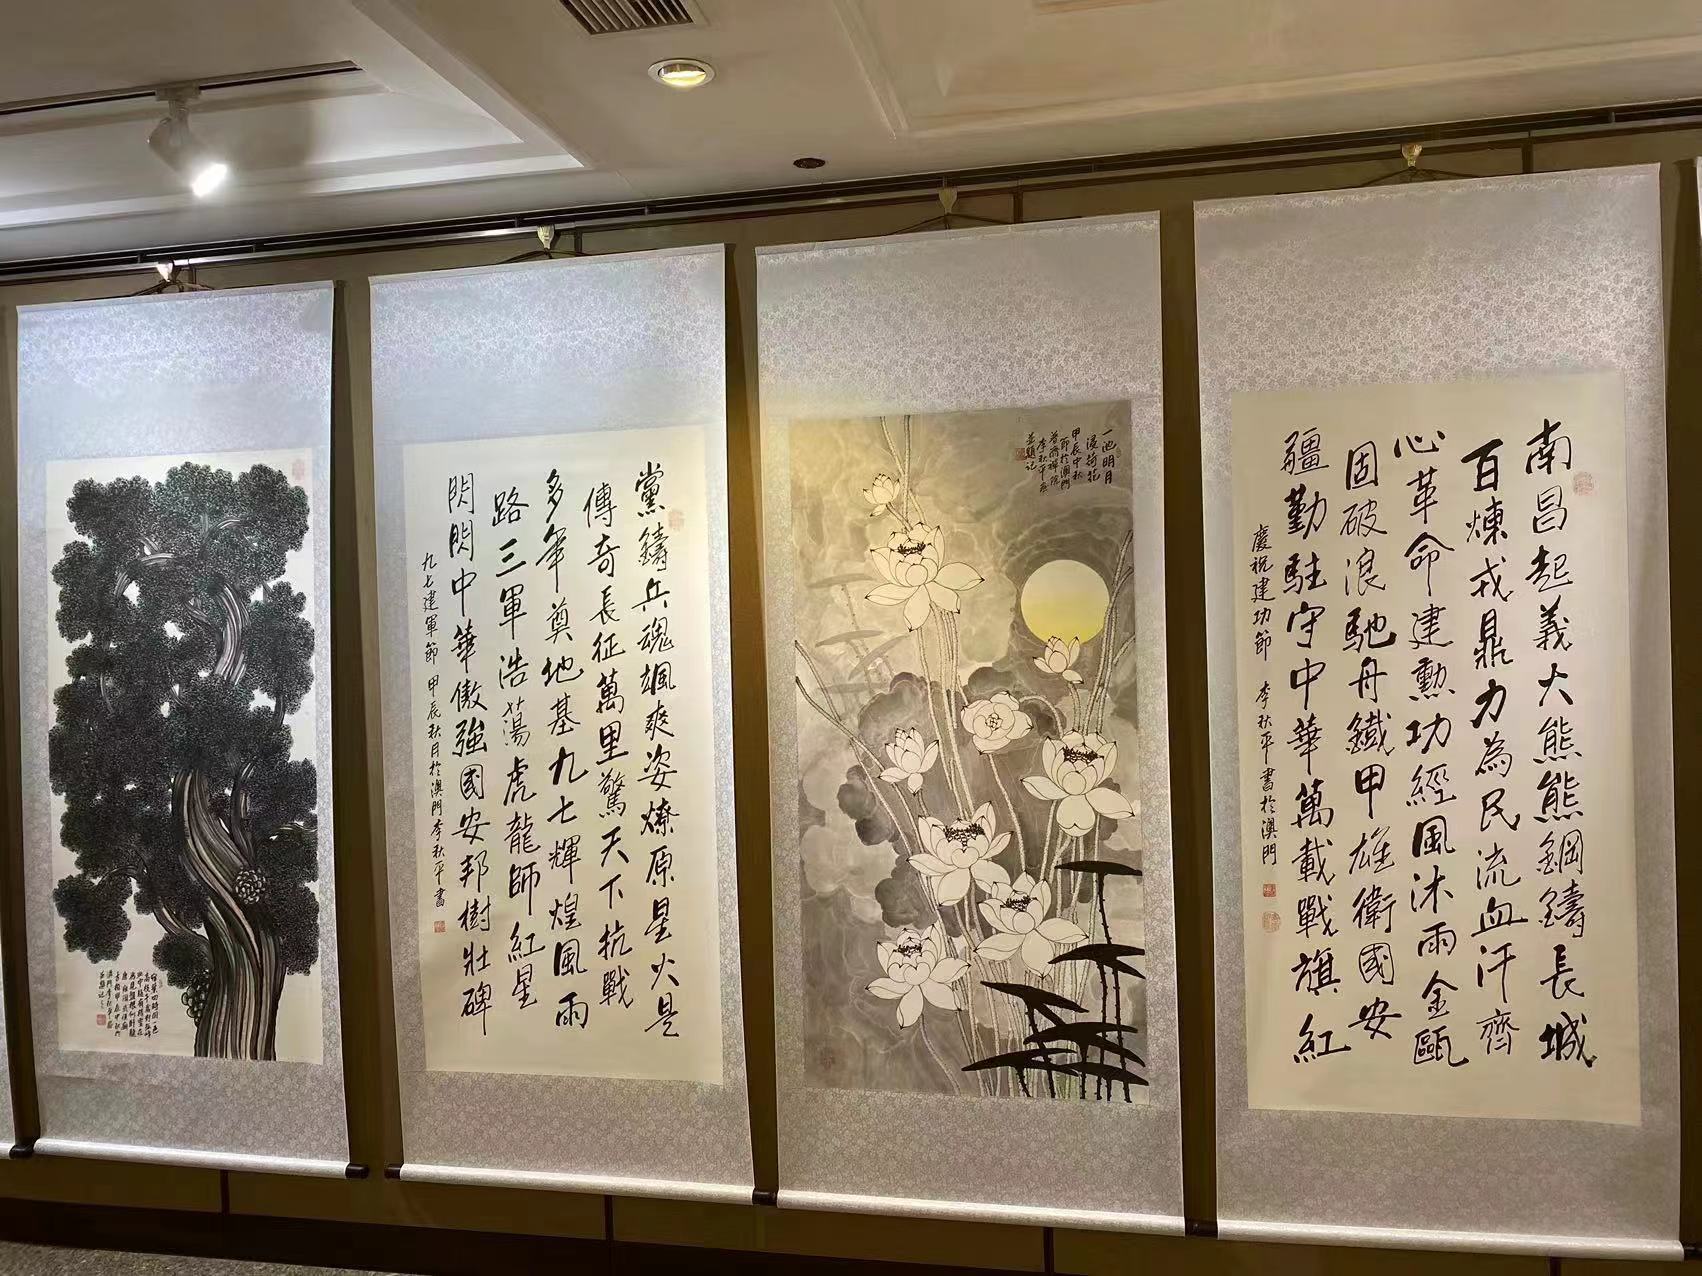 南昌起義大熊熊鋼鑄長城
百煉戎鼎力為民流血汗齊
心革命建勳功經風沐雨金甌
固破浪馳舟鐵甲雄衛國安
疆勤駐守中華萬載戰旗紅
慶祝建功節 李秋平書於澳門
一池明月
浸荷花
甲辰中秋
節於澳門
普濟禪院
李秋平
並題記
黨鑄兵魂颯爽姿燎原星火是
傳奇長征萬里驚天下抗戰
多年奠地基九七輝煌風雨
路三軍浩蕩虎龍師紅星
閃閃中華傲強國安邦樹壯碑
九七建軍節 甲辰秋月於澳門李秋平書
並題記